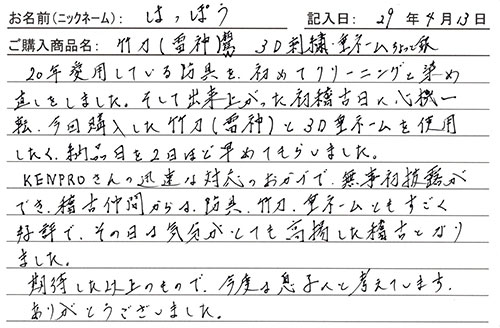 お名前(ニックネーム): はっぽう 記入日: 29 年 4 月 13 日
ご購入商品名: 竹刀(雷神 3D刺繍・垂ネーム
20年愛用している防具を、初めてクリーニングと染め
直しをしました。そして出来上がった初稽古日に心機一
転、今回購入した竹刀(雷神)と3D垂ネームを使用
したく、納品日を2日ほど早めてもらいました。
KENPROさんの迅速な対応のおかげで、無事初披露が
でき、稽古仲間からは、防具、竹刀、垂ネームともすごく
好評で、その日は気分がとても高揚した稽古となり
ました。
期待した以上のもので、今度は息子にと考えています。
ありがとうございました。